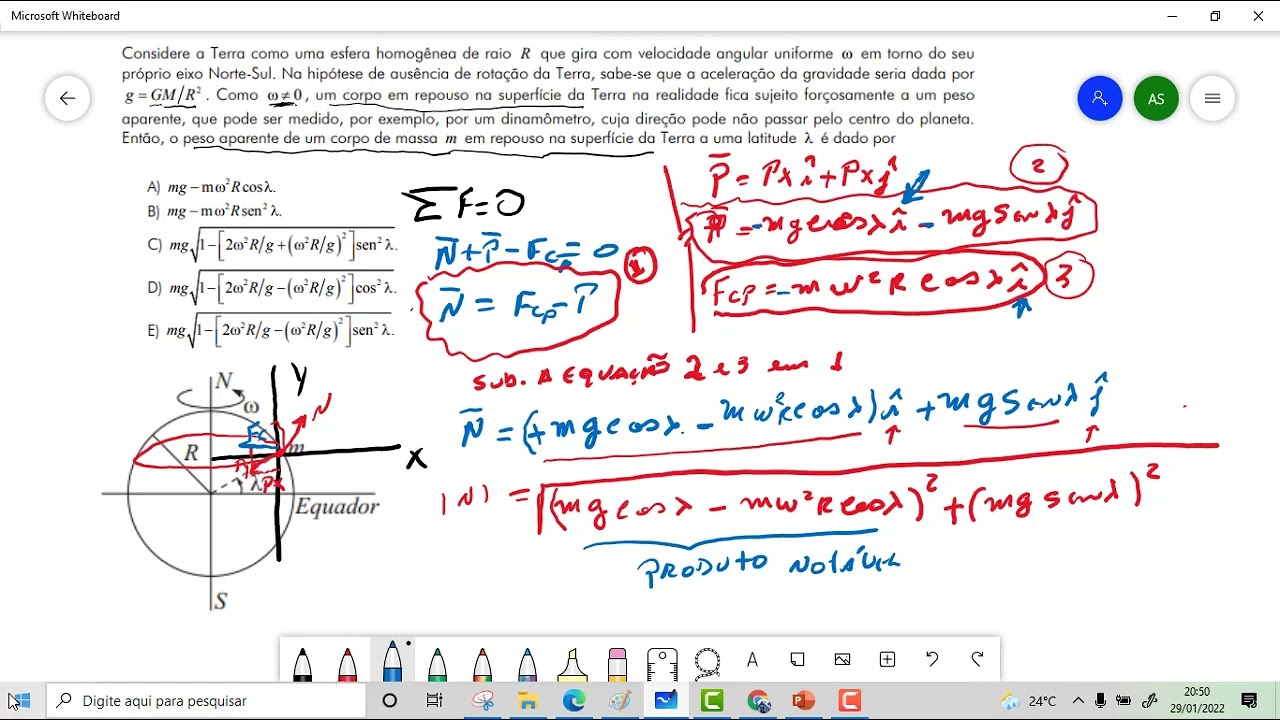 Microsoft Whiteboard
Considere a Terra como uma esfera homogênea de raio R que gira com velocidade angular uniforme ω em torno do seu
próprio eixo Norte-Sul. Na hipótese de ausência de rotação da Terra, sabe-se que a aceleração da gravidade seria dada por
g = GM/R². Como ω≠0, um corpo em repouso na superfície da Terra na realidade fica sujeito forçosamente a um peso
aparente, que pode ser medido, por exemplo, por um dinamômetro, cuja direção pode não passar pelo centro do planeta.
Então, o peso aparente de um corpo de massa m em repouso na superfície da Terra a uma latitude λ é dado por
AS
A) mg − mω²Rcosλ.
B) mg − mω²Rsen²λ.
C) mg√1−[2ω²R/g+(ω²R/g)²]sen²λ.
D) mg√1−[2ω²R/g−(ω²R/g)²]cos²λ.
E) mg√1−[2ω²R/g−(ω²R/g)²]sen²λ.
ΣF=0
N̄+P̄−Fcp=0
N̄ = Fcp−P̄
1
P̄ = Pxî+Pxĵ
2
= −mg cosλ î − mg senλ ĵ
Fcp = −mω²R cosλ î
3
SUB. A EQUAÇÃO 2 e 3 em 1
N̄ = (+mg cosλ − mω²R cosλ) î + mg senλ ĵ
|N| = √(mg cosλ − mω²R cosλ)² + (mg senλ)²
PRODUTO NOTÁVEL
N
ω
Y
N
Fc
R
m
X
Px
λ
Equador
S
A
Digite aqui para pesquisar
24°C
20:50
29/01/2022